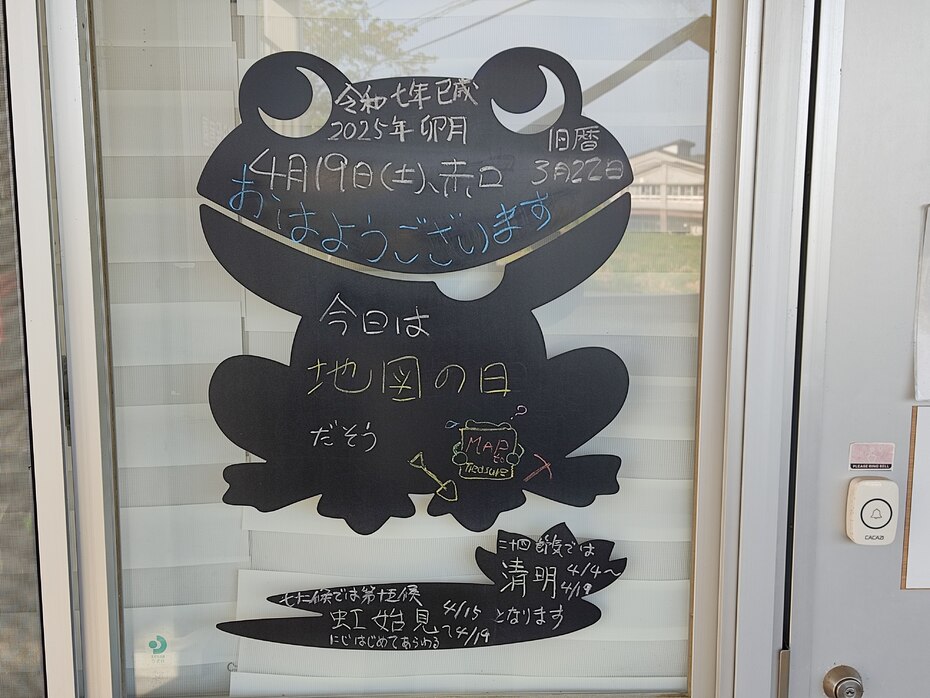 令和七年 己歳
2025年 卯月
4月19日(土)、赤口
旧暦
3月22日
おはようございます
今日は
地図の日
だそう
?
MAP
to
Tredsure
二十四節気では
清明 4/4〜
4/19
七十二候では第十五候
虹始見 4/15
〜4/19
にじはじめてあらわる
となります
PLEASE RING BELL
CACAZI